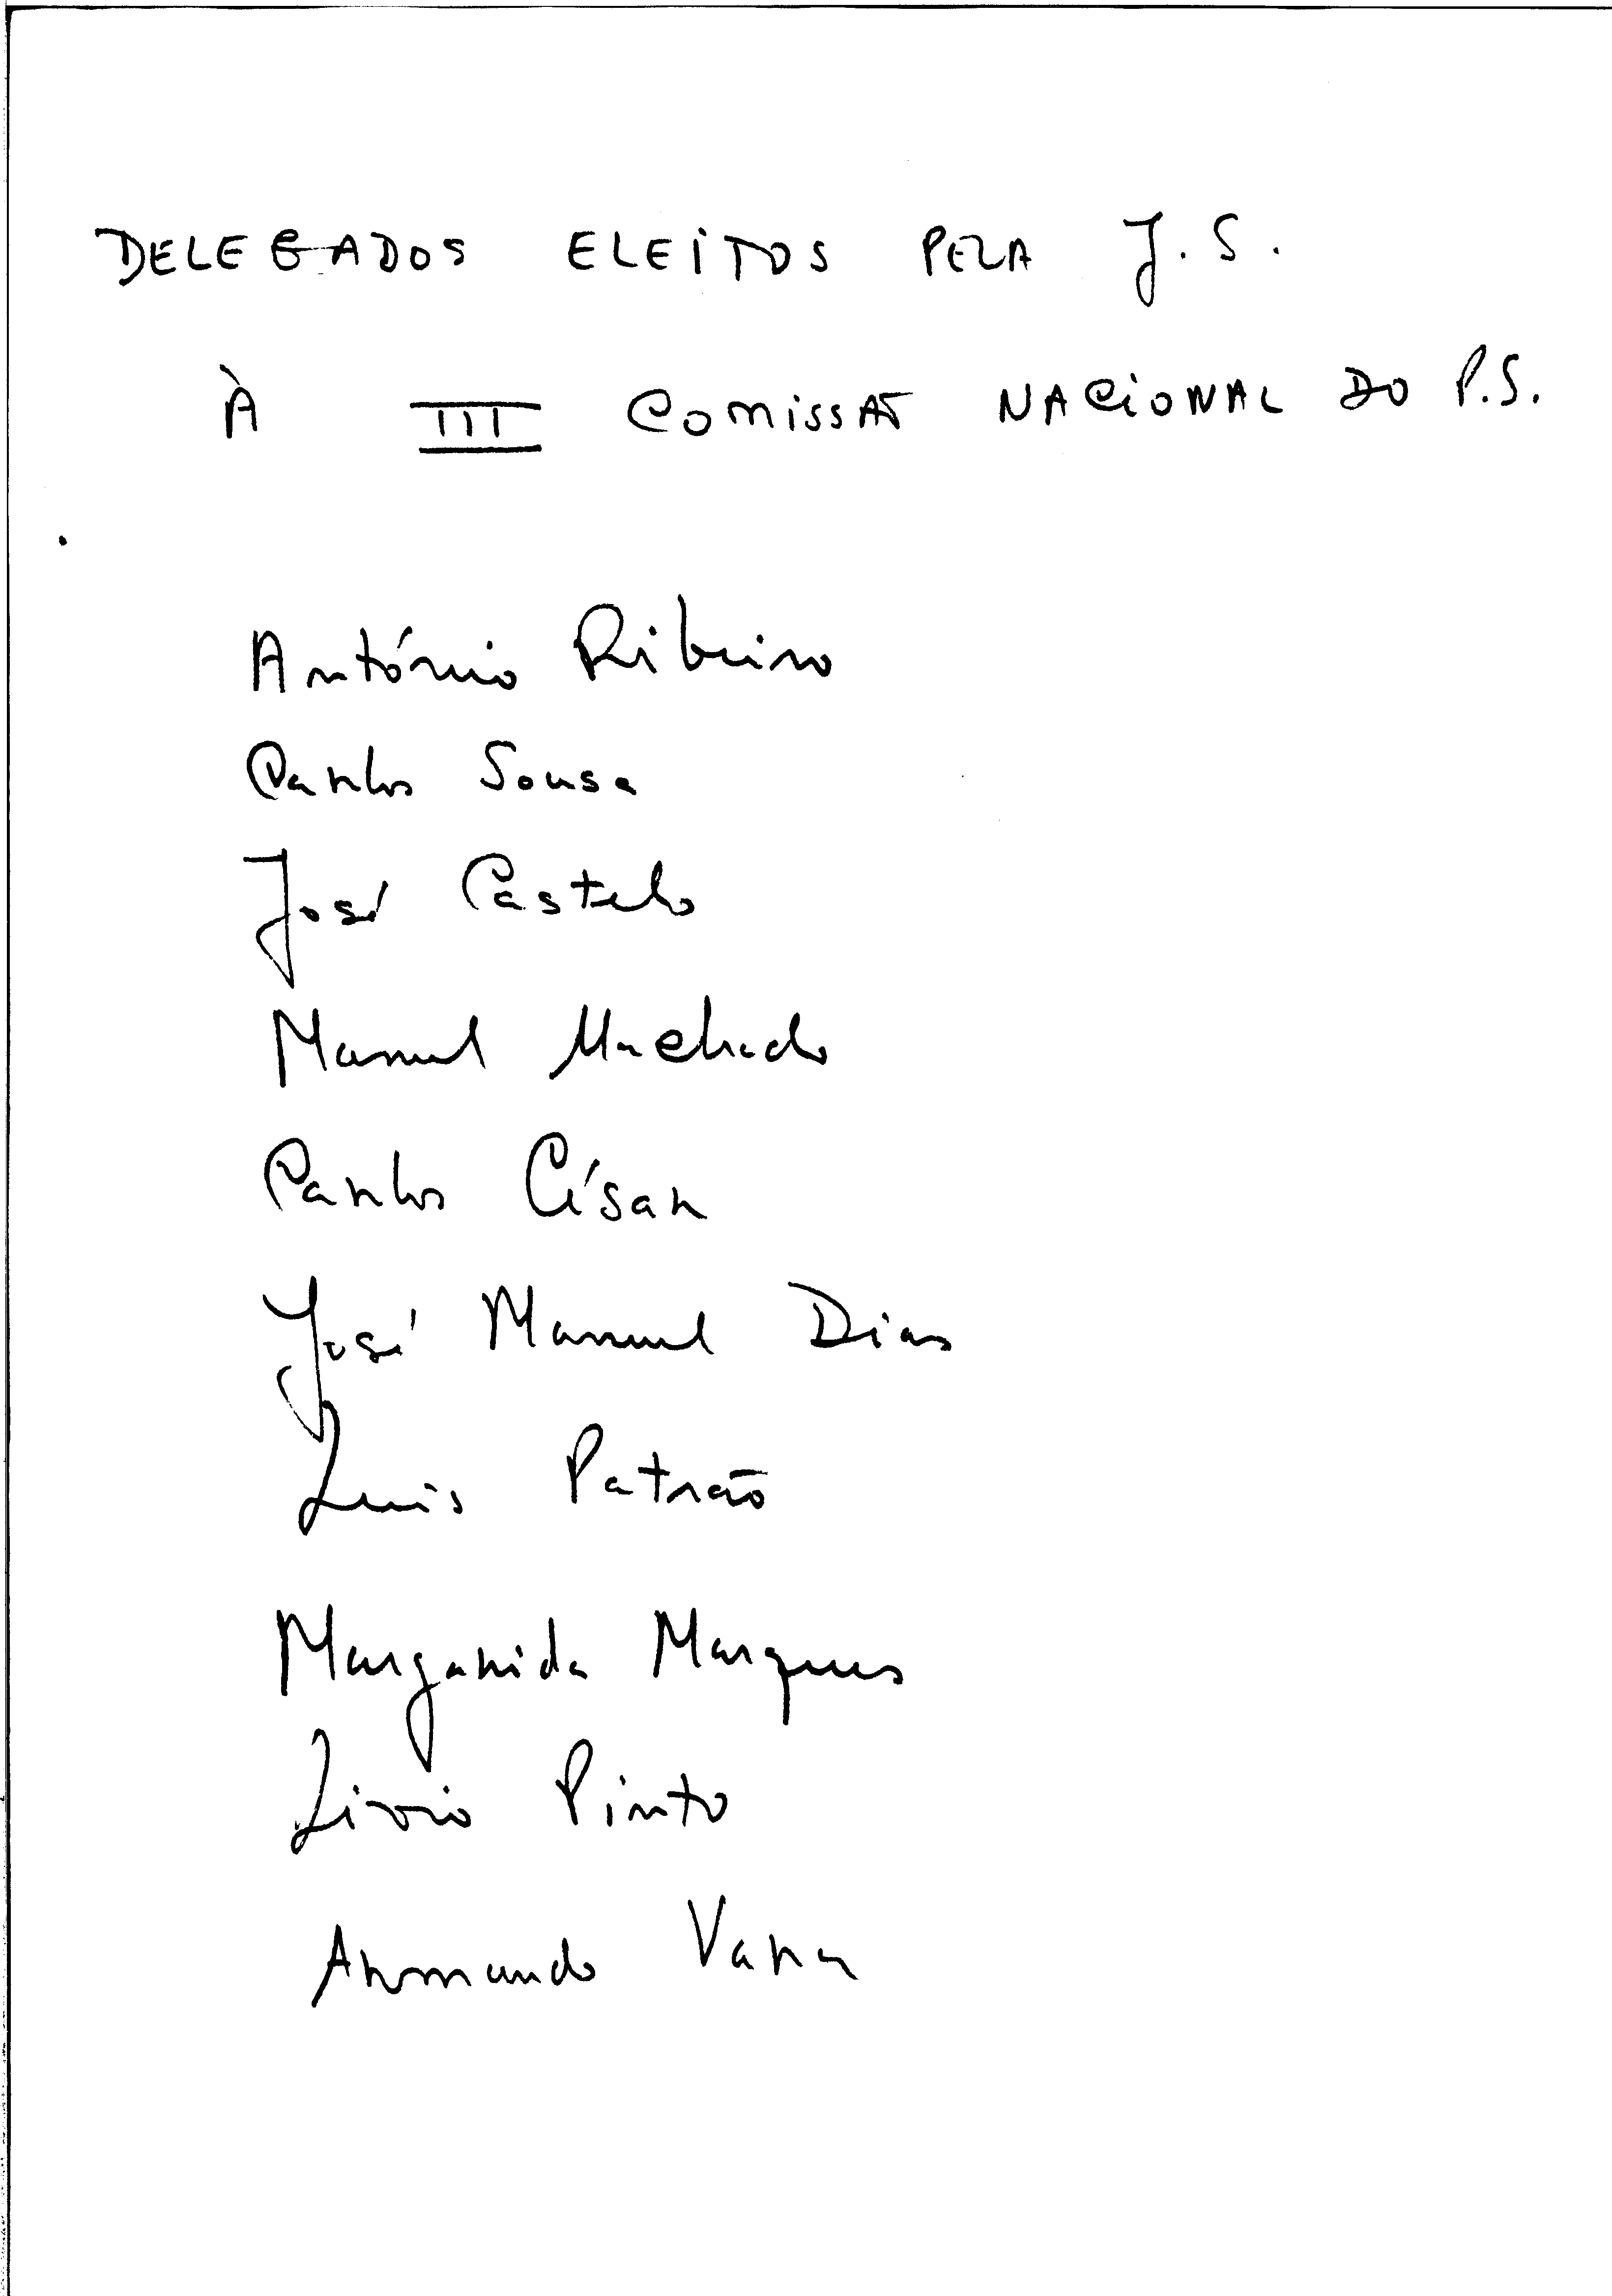 DELEGADOS ELEITOS PELA J.S.
À III COMISSÃO NACIONAL DO P.S.
António Ribeiro
Carlos Sousa
José Castelo
Manuel Machado
Carlos César
José Manuel Dias
Luis Patrão
Margarida Marques
Livio Pinto
Armando Vara